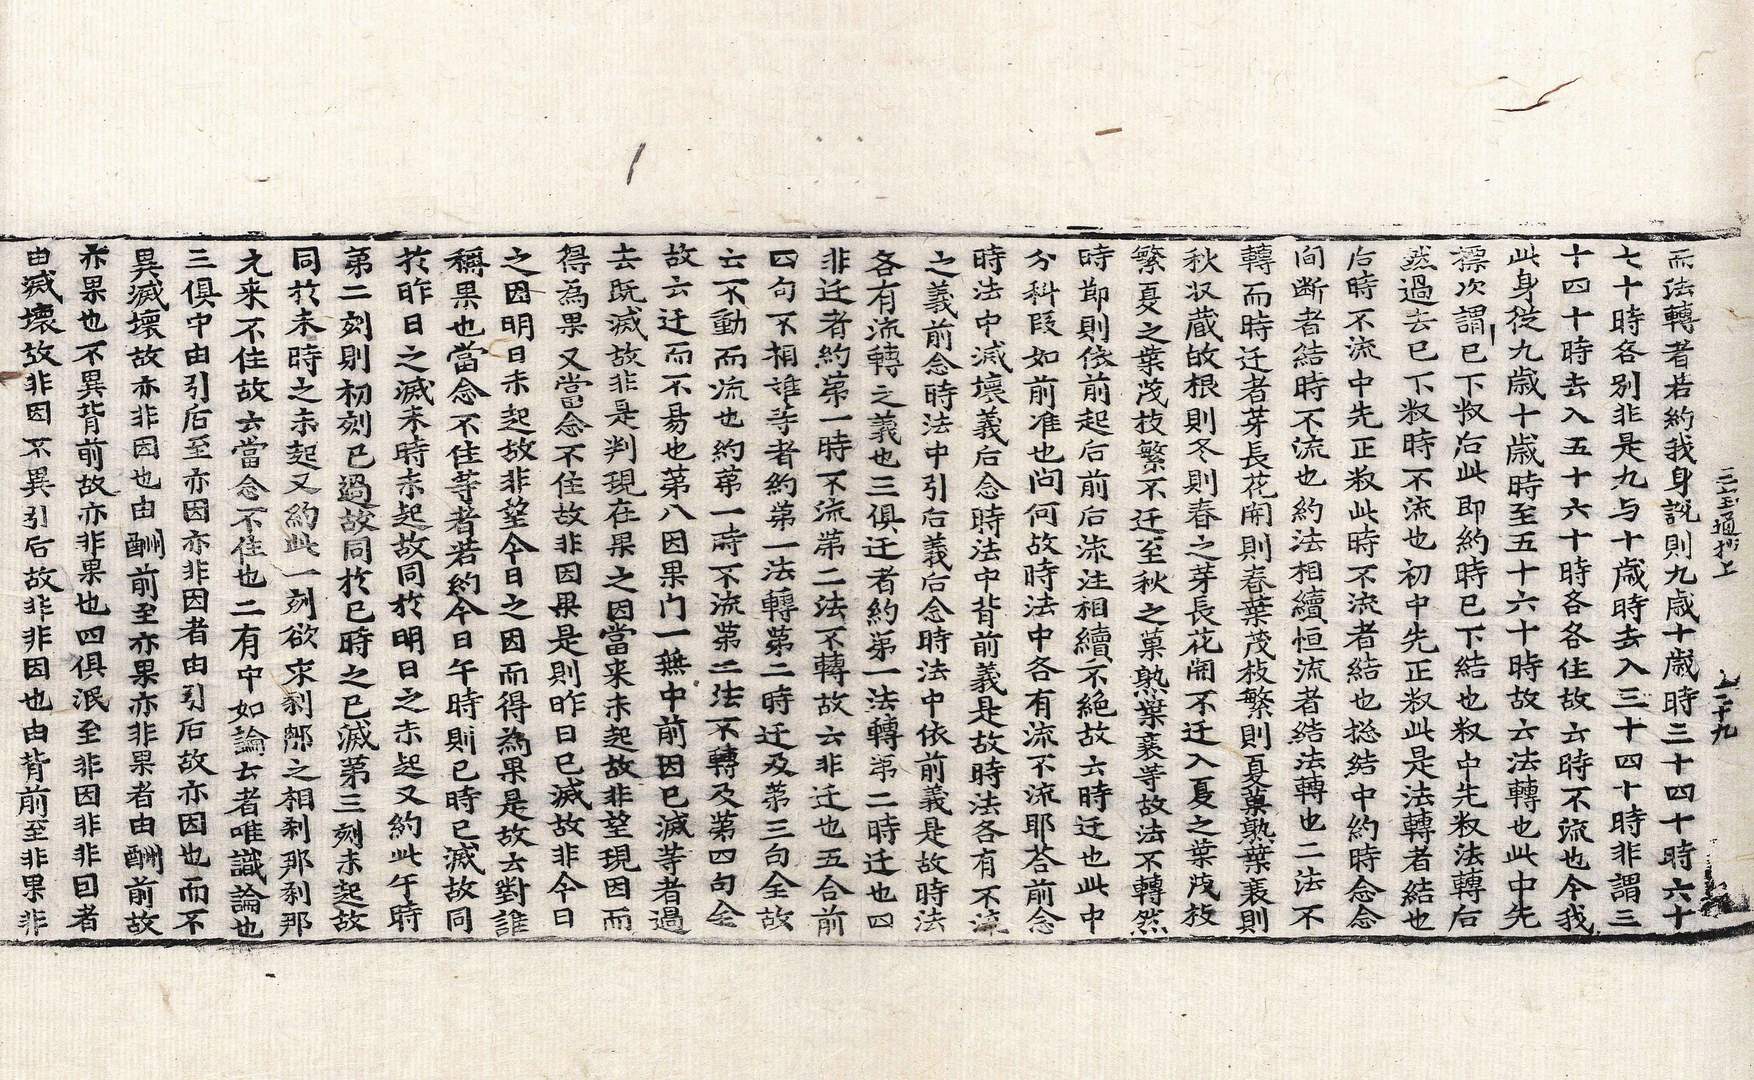 三宝通抄上 二十九
而法轉者若約我身說則九歲十歲時三十四十時六十
七十時各別非是九与十歲時去入三十四十時非謂三
十四十時去入五十六十時各各住故云時不流也今我
此身從九歲十歲時至五十六十時故云法轉也此中先
標次謂已下㪅后此即約時已下結也㪅中先㪅法轉后
然過去已下㪅時不流也初中先正㪅此是法轉者結也
后時不流中先正㪅此時不流者結也㧾結中約時念念
间断者結時不流也約法相續恒流者結法轉也二法不
轉而時迁者芽長花開則春葉茂枝繁則夏菓熟葉衰則
秋収蔵故根則冬則春之芽長花開不迁入夏之葉茂枝
繁夏之葉茂枝繁不迁至秋之菓熟葉衰等故法不轉然
時節則依前起后前后流注相續不絕故云時迁也此中
分科段如前准也问何故時法中各有流不流耶荅前念
時法中滅壞義后念時法中背前義是故時法各有不流
之義前念時法中引后義后念時法中依前義是故時法
各有流轉之義也三俱迁者約第一法轉第二時迁也四
非迁者約第一時不流第二法不轉故云非迁也五合前
四句不相誰等者約第一法轉第二時迁及第三句全故
云不動而流也約第一時不流第二法不轉及第四句全
故云迁而不易也第八因果门一無中前因已滅等者過
去旣滅故非是判現在果之因當来未起故非望現因而
得為果又當念不住故非因果是則昨日已滅故非今日
之因明日未起故非望今日之因而得為果是故云對誰
稱果也當念不住等者若約今日午時則已時已滅故同
於昨日之滅未時未起故同於明日之未起又約此午時
第二刻則初刻已過故同於已時之已滅第三刻未起故
同於未時之未起又約此一刻欲求刹那之相刹那刹那
元来不住故云當念不住也二有中如論云者唯識論也
三俱中由引后至亦因亦非因者由引后故亦因也而不
異滅壞故亦非因也由酬前至亦果亦非果者由酬前故
亦果也不異背前故亦非果也四俱泯至非因非非因者
由滅壞故非因不異引后故非非因也由背前至非果非